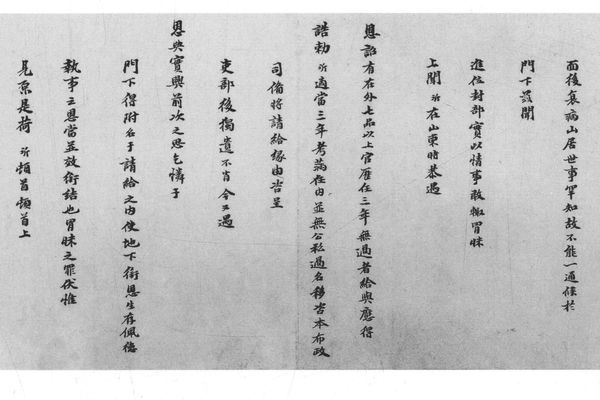 面後衰病山居世事罕知故不能一通候於
門下茲聞
進位封部實以情事敢輒冒昧
上聞所在山東時恭遇
恩詔有在外七品以上官歷任三年無過者給與應得
誥勅所適當三年考滿在內並無公私過名移咨本布政
司備將請給緣由咨呈
吏部後獨遺不肖今又遇
恩典實與前次之恩乞憐于
門下得附名于請給之內使地下銜恩生存佩德
執事之恩當並效銜結也冒昧之罪伏惟
見原是荷所頓首頓首上